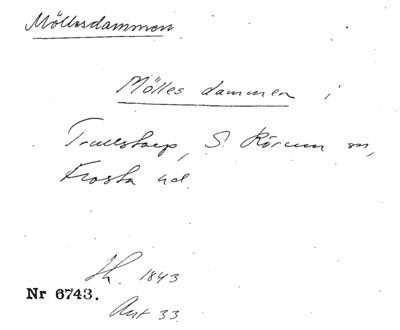 Möllesdammen
Mölles dammen i
Trulstorp, S. Rörum sn,
Frosta hd.
Hl. 1843
Nr 6743.
Ant 33.